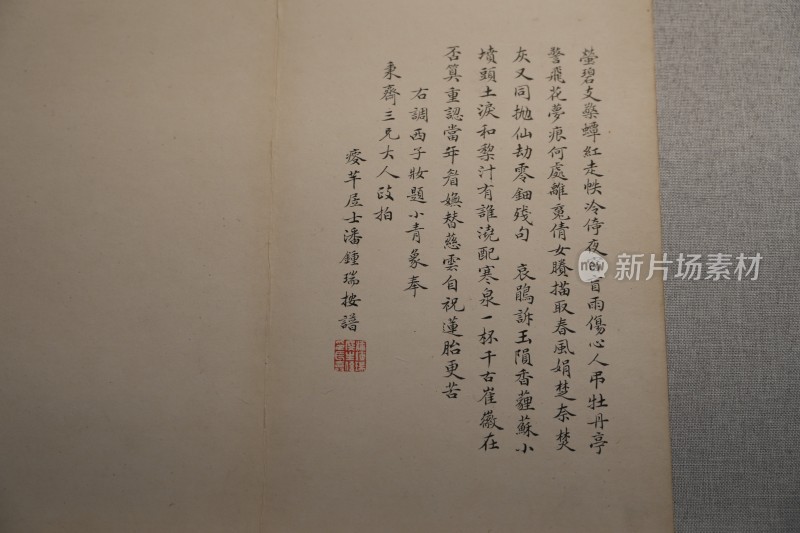 螢碧支藥蟫紅走帙冷倚夜百雨傷心人弔牡丹亭
警飛花夢痕何處離䰟倩女賸描取春風娟楚奈焚
灰又同拋仙劫零鈿殘句 哀鵑訴玉隕香薶蘇小
墳頭土淚和棃汁有誰澆配寒泉一杯千古崔徽在
否箕重認當年眉嫵替慈雲自祝蓮胎更苦
右調西子妝題小青象奉
秉齋三兄大人政拍
瘦羊居士潘鍾瑞按譜
new 新片场素材